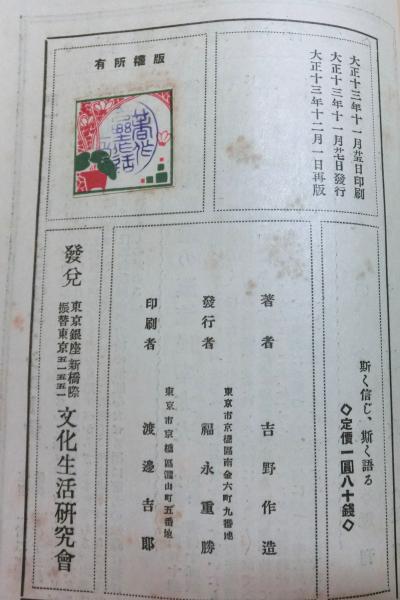 大正十三年十一月廿五日印刷
大正十三年十一月廿七日發行
大正十三年十二月一日再版
版權所有
斯く信じ、斯く語る
◇定價一圓八十錢◇
著者 吉野作造
東京市京橋區南金六町九番地
發行者 福永重勝
東京市京橋區瀧山町五番地
印刷者 渡邊吉郎
發兌
東京銀座新橋際
振替東京五一五五一
文化生活研究會